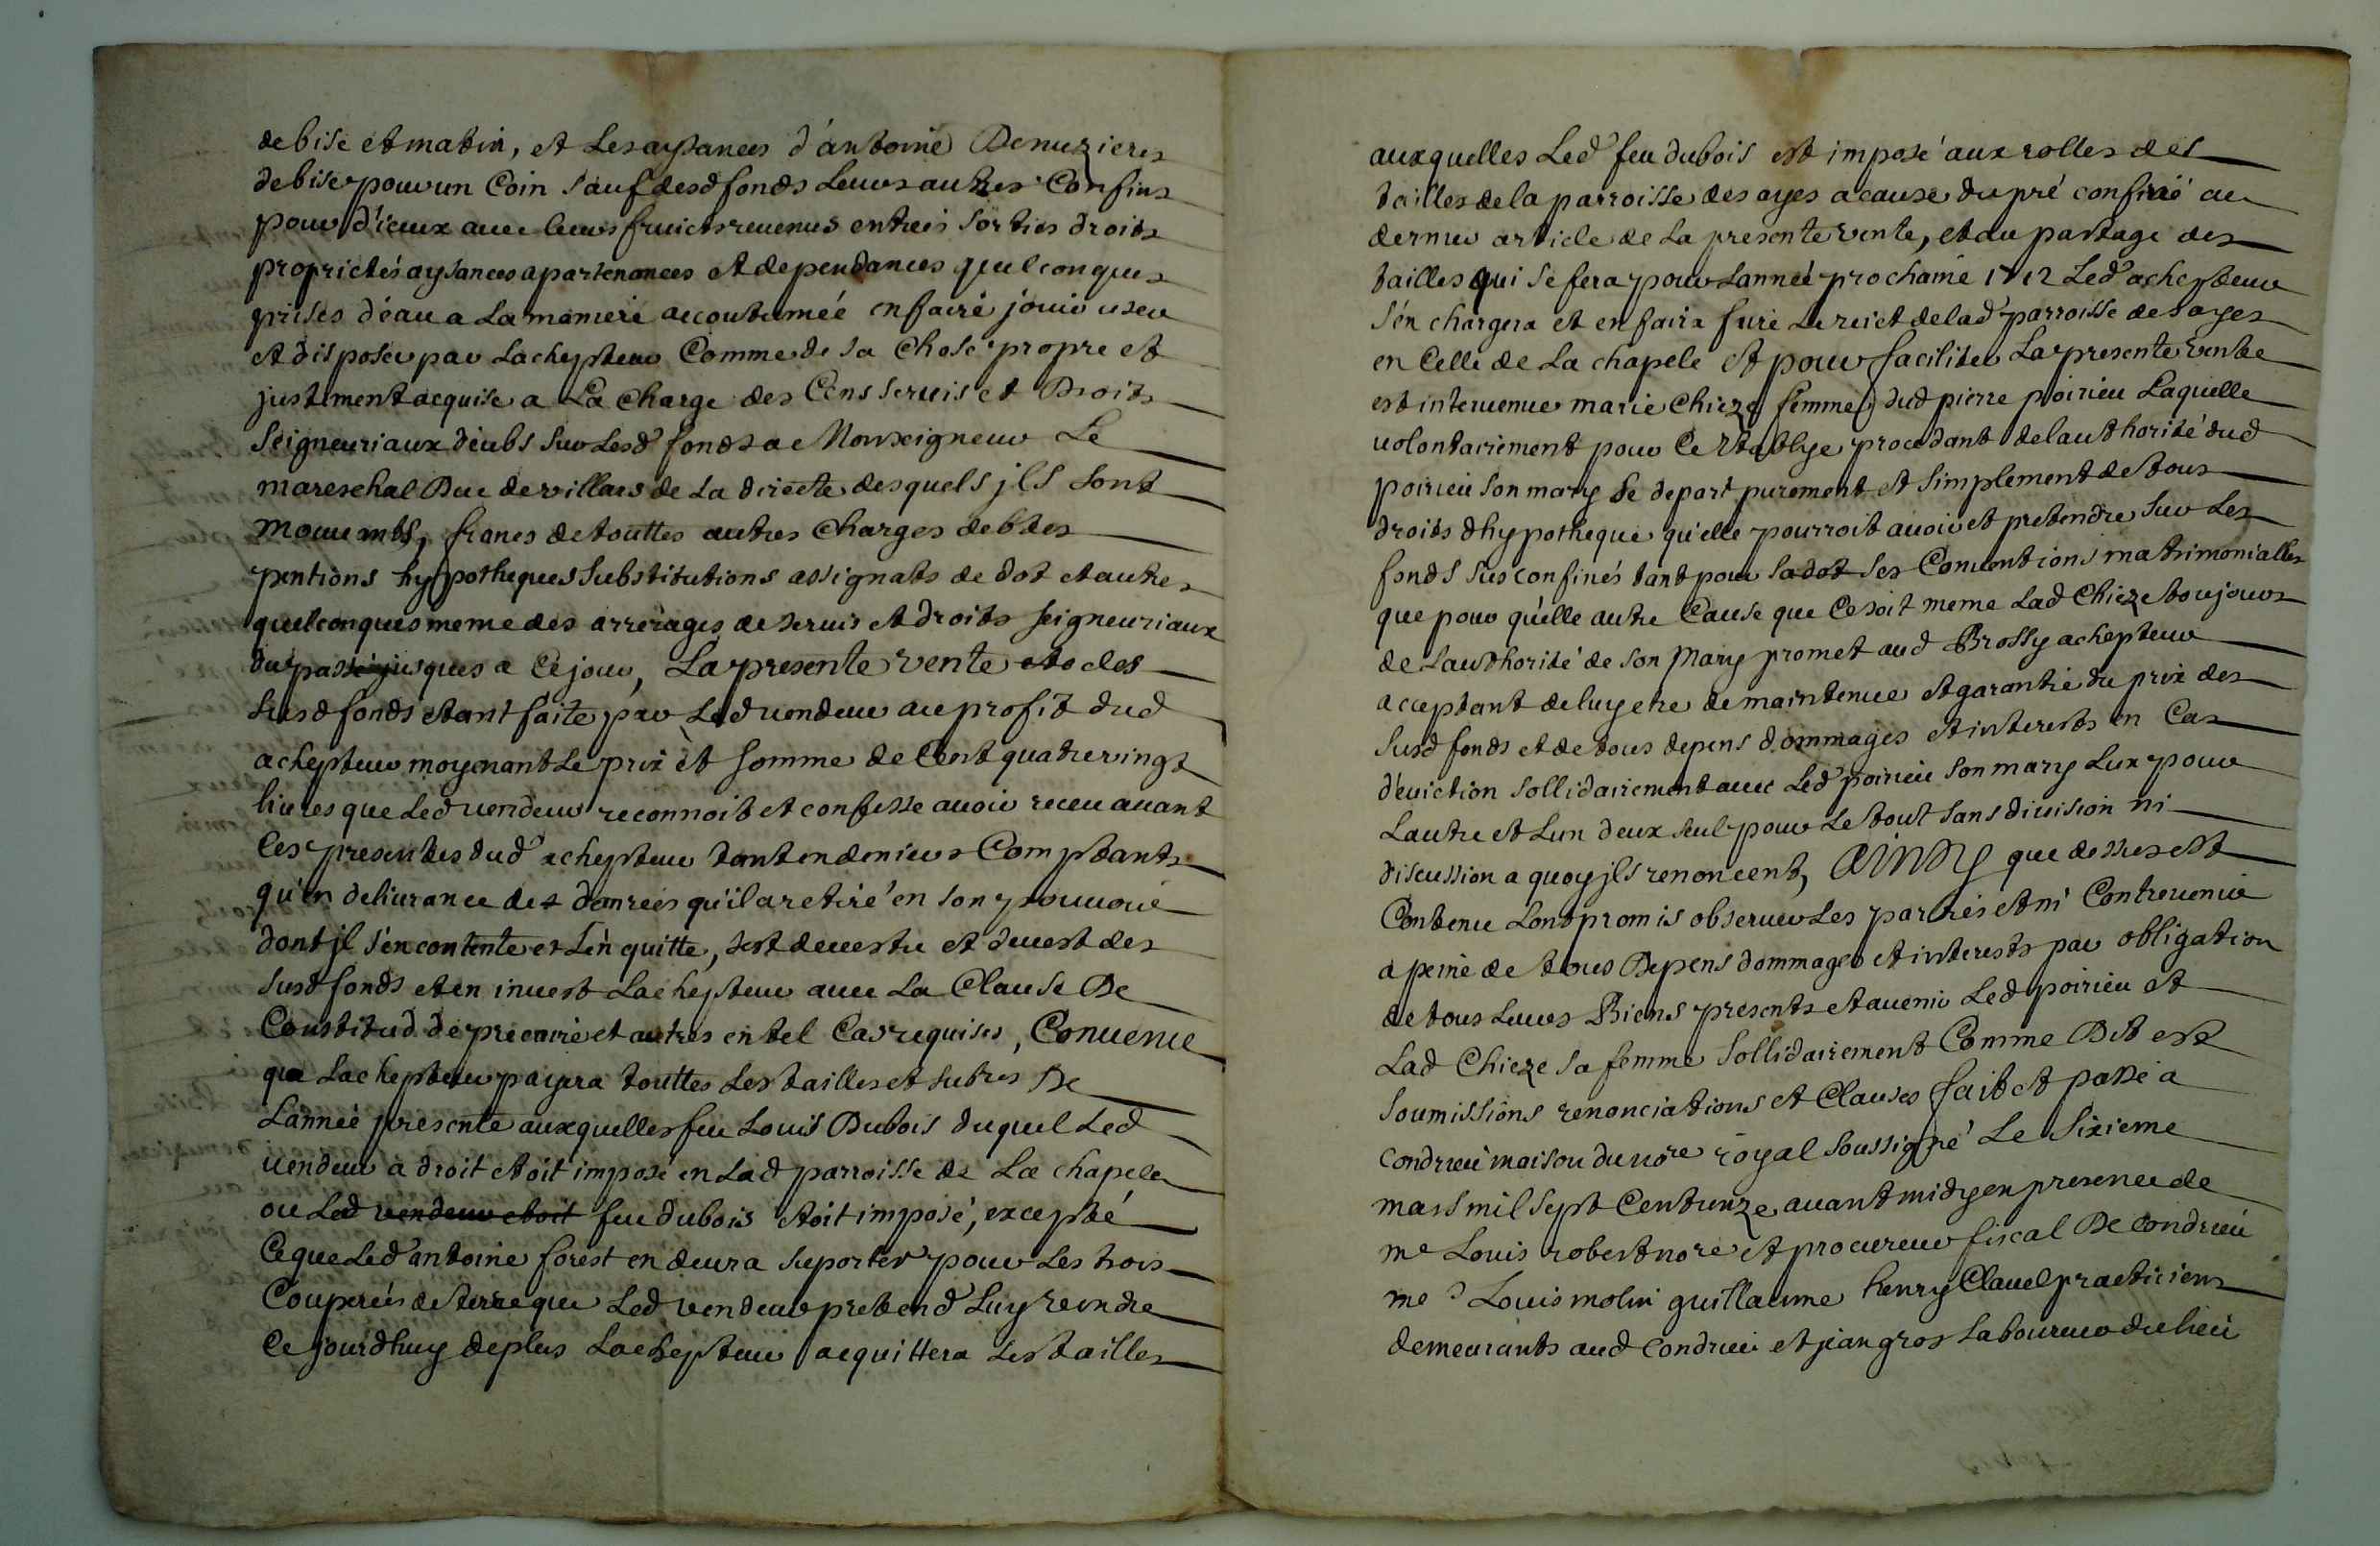 de bise et matin, et les aysances d'antoine Demuzieres
de bise pour un Coin sauf desd fonds leurs autres Confins
pour d'iceux avec leurs fruicts revenus entreés sorties droits
proprietés aysances apartenances et dependances quelconques
prises d'eau a la maniere accoutumeé en faire jouir user
et disposer par lachepteur Comme de sa Chose propre et
justement acquise a La Charge des Cens servis et Droits
seigneuriaux deubs sur Lesd fonds a Monseigneur Le
mareschal Duc de villars de la directe desquels jls sont
mouvents, francs de touttes autres Charges debtes
pentions hypotheques substitutions assignats de dot et autres
quelconques meme des arrerages de servis et droits seigneuriaux
du passé jusques a Ce jour, La presente vente des
susd fonds etant faite par Led vendeur au profit dud
achepteur moyenant Le prix et somme de Cent quatre vingt
livres que Led vendeur reconnoit et confesse avoir receu avant
Ces presentes dud achepteur tant en deniers Comptants
qu'en delivrance des danreés qu'il a retiré en son pouvoir
dont jl s'en contente et L'en quitte, s'est devestu et devest des
susd fonds et en invest Lachepteur avec La Clause De
Constitud de precaire et autres en tel Cas requises, Convenu
que Lachepteur payera touttes Les tailles et subres De
L'anneé presente auxquelles feu Louis Dubois duquel Led
vendeur a droit etoit imposé en Lad parroisse de La chapele
ou Led vendeur etoit feu dubois etoit imposé, excepté
Ce que Led antoine forest en devra suporter pour Les trois
Coupereés de terre que Led vendeur pretend Luy rendre
Ce jourdhuy de plus Lachepteur acquittera Les tailles
auxquelles Led feu dubois est imposé aux rolles des
tailles de la parroisse des ayes a cause du pré confiné au
dernier article de La presente vente, et au partage des
tailles qui se fera pour Lanneé prochaine 1712 Led achepteur
s'en chargera et en faira faire de lad parroisse des ayes
en Celle de La chapele et pour faciliter La presente vente
est intervenue marie Chieze femme dud pierre poirieu Laquelle
volontairement pour Ce etablye procedant de lauthorité dud
poirieu son mary se depart purement et simplement de tous
droits dhypotheque qu'elle pourroit avoir et pretendre sur Les
fonds susconfinés tant pour sa dot ses Conventions matrimonialles
que pour quelle autre Cause que Ce soit meme Lad Chieze toujours
de Lauthorité de son Mary promet aud Brossy achepteur
acceptant de luy etre de maintenue et garantie du prix des
susd fonds et de tous depens dommages et interests en Cas
d'eviction sollidairement avec Led poirieu son mary Lux pour
Lautre et Lun deux seul pour Le tout sans division ni
discussion a quoy jls renoncent, AINSY que dessus est
Contenu L'ont promis observer Les parties et ni Contrevenir
a peine de tous Depens dommages et interests par obligation
de tous Leurs Biens presents et avenir Led poirieu et
Lad Chieze sa femme sollidairement Comme Dit est
soumissions renonciations et Clauses fait et passé a
condrieu maison du nore royal soussigné Le sixieme
mars mil sept Cent unze avant midy en presence de
me Louis robert nore et procureur fiscal De condrieu
mes Louis molin guillaume henry Clavel practiciens
demeurants aud condrieu et jean gros Laboureur du lieu